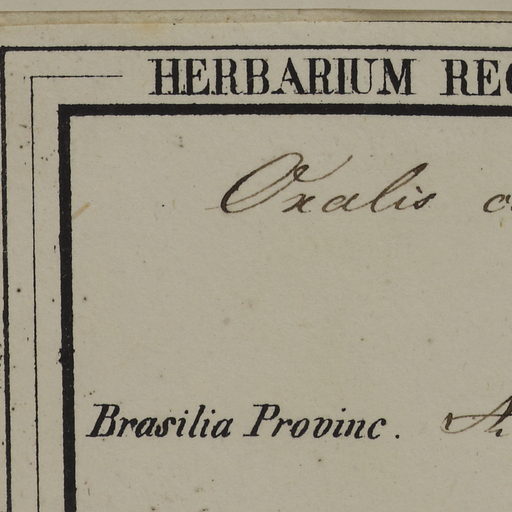 HERBARIUM
Oxalis
Brasilia Provinc.